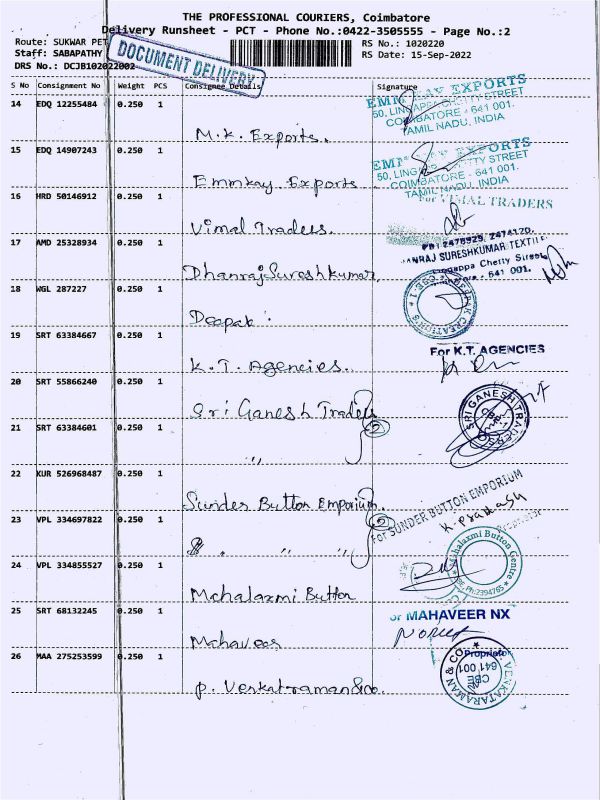 THE PROFESSIONAL COURIERS, Coimbatore
Delivery Runsheet - PCT - Phone No.:0422-3505555 - Page No.:2
Route: SUKWAR PET
RS No.: 1020220
Staff: SABAPATHY
RS Date: 15-Sep-2022
DRS No.: DCJB102022002
DOCUMENT DELIVERY
S No Consignment No Weight PCS Consignee Details Signature
14 EDQ 12255484 0.250 1
M.K. Exports.
EMMKAY EXPORTS
50, LINGAPPA CHETTY STREET
COIMBATORE - 641 001.
TAMIL NADU, INDIA
15 EDQ 14907243 0.250 1
Emmkay Exports
EXPORTS
50, LINGAPPA CHETTY STREET
COIMBATORE - 641 001.
TAMIL NADU, INDIA
16 HRD 50146912 0.250 1
Vimal Traders.
For VIMAL TRADERS
17 AMD 25328934 0.250 1
Dhanraj Sureshkumar,
PH: 2476929, 2474120.
ANRAJ SURESHKUMAR TEXTIL
ngappa Chetty Street
- 641 001.
18 WGL 287227 0.250 1
Deepak
DEEPAK CREATIONS
CBE-1
19 SRT 63384667 0.250 1
K.T. Agencies.
For K.T. AGENCIES
20 SRT 55866240 0.250 1
Sri Ganesh Traders
SRI GANESH TRADERS
21 SRT 63384601 0.250 1
"
2
22 KUR 526968487 0.250 1
Sunder Button Emporium.
FOR SUNDER BUTTON EMPORIUM
K. Prakash
Proprietor
23 VPL 334697822 0.250 1
" "
2
24 VPL 334855527 0.250 1
Mahalaxmi Button
Mahalaxmi Button Centre
Ph:2394765
25 SRT 68132245 0.250 1
Mahaveer
or MAHAVEER NX
Proprietor
26 MAA 275253599 0.250 1
P. Venkatraman & co.
VENKATARAMAN & CO.
CBE
641 001